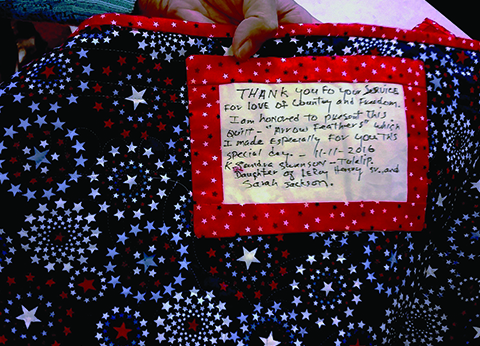 THANK YOU Fo Your Service
For love of Country and Freedom.
I am honored to present This
Quilt - "Arrow Feathers" which
I made Especially For YOU This
special day. - 11-11-2016
Sandra Swanson - Tulalip.
Daughter of LeRoy Henry Sr. and
Sarah Jackson.